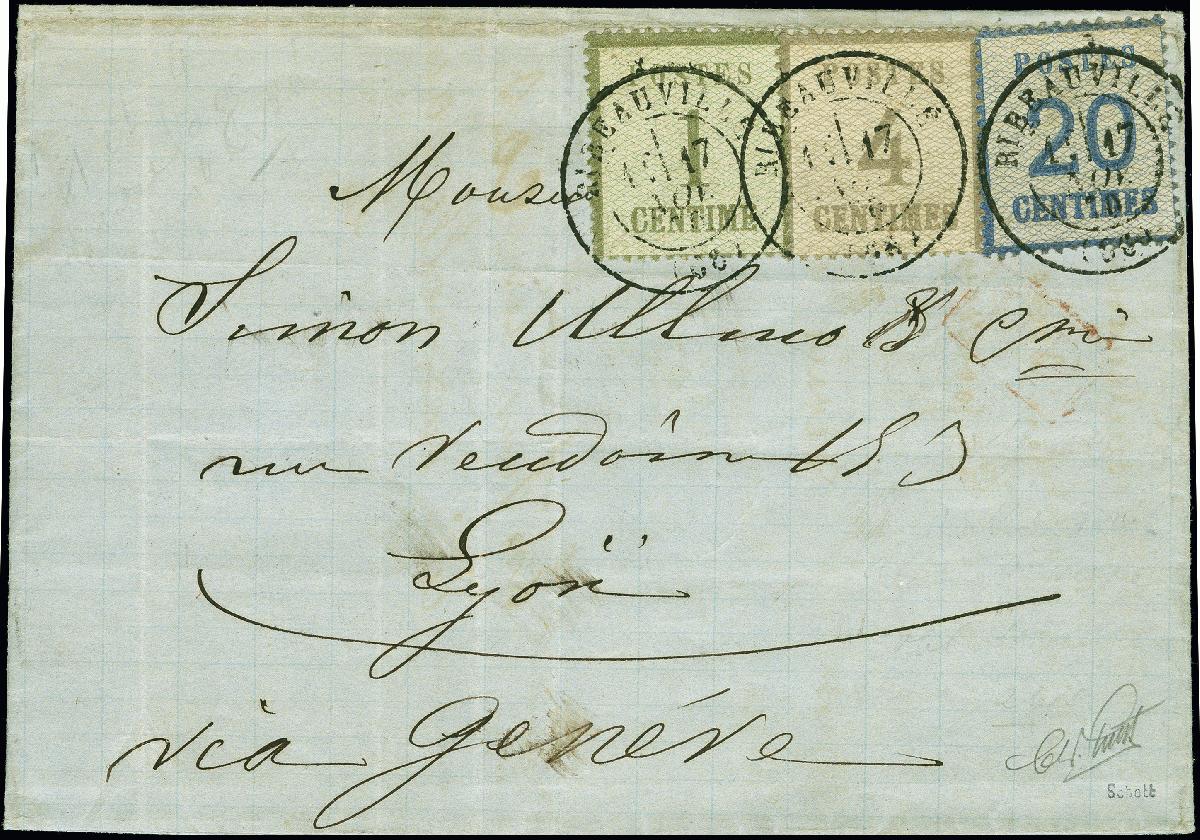 POSTES
1
CENTIME
POSTES
4
CENTIMES
POSTES
20
CENTIMES
RIBEAUVILLE
17
RIBEAUVILLE
17
RIBEAUVILLE
17
Monsieur
Simon Ullmo & Cnie
rue Vendôme 153
Lyon
via Genève
Schott